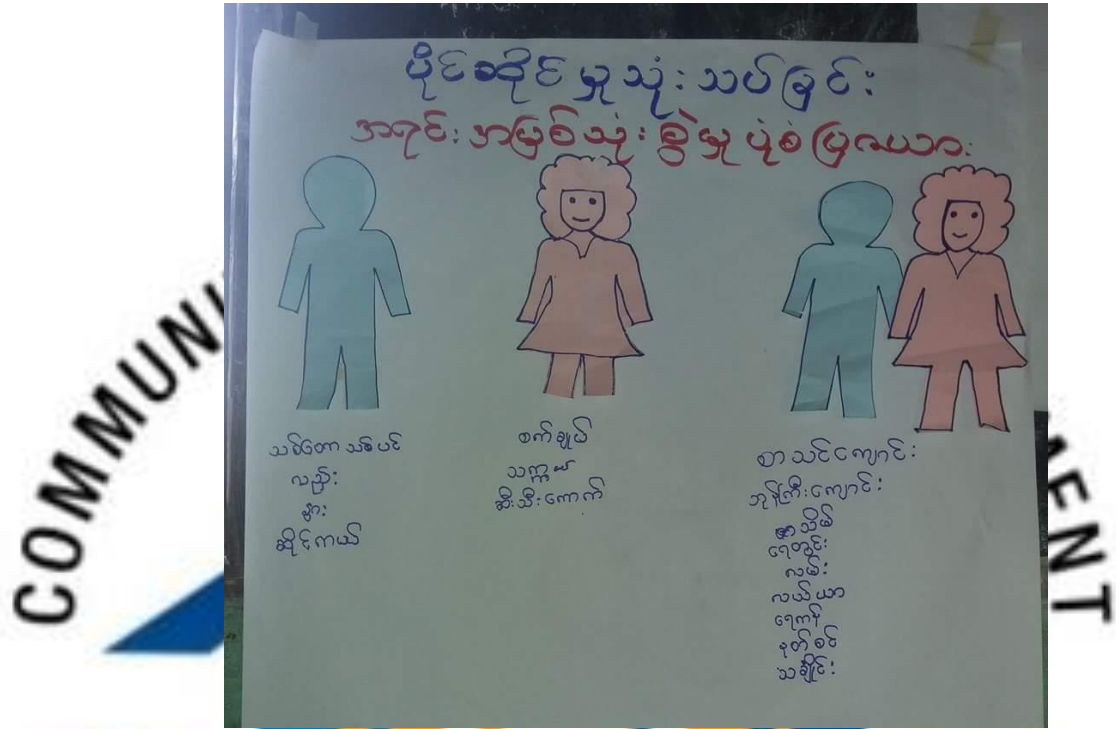 ပိုင်ဆိုင်မှုသုံးသပ်ခြင်း
အရင်းအမြစ်သုံးစွဲမှုပုံစံပြဇယား
သစ်တောသစ်ပင်
လည်း
နွား
ဆိုင်ကယ်
စက်ချုပ်
သက္ကယ်
ဆီးသီးကောက်
စာသင်ကျောင်း
ဘုန်ကြီးကျောင်း
ရေတွင်း
လမ်း
လယ်ယာ
ရေကန်
နတ်စင်
သချိုင်း
COMMUNI
MENT